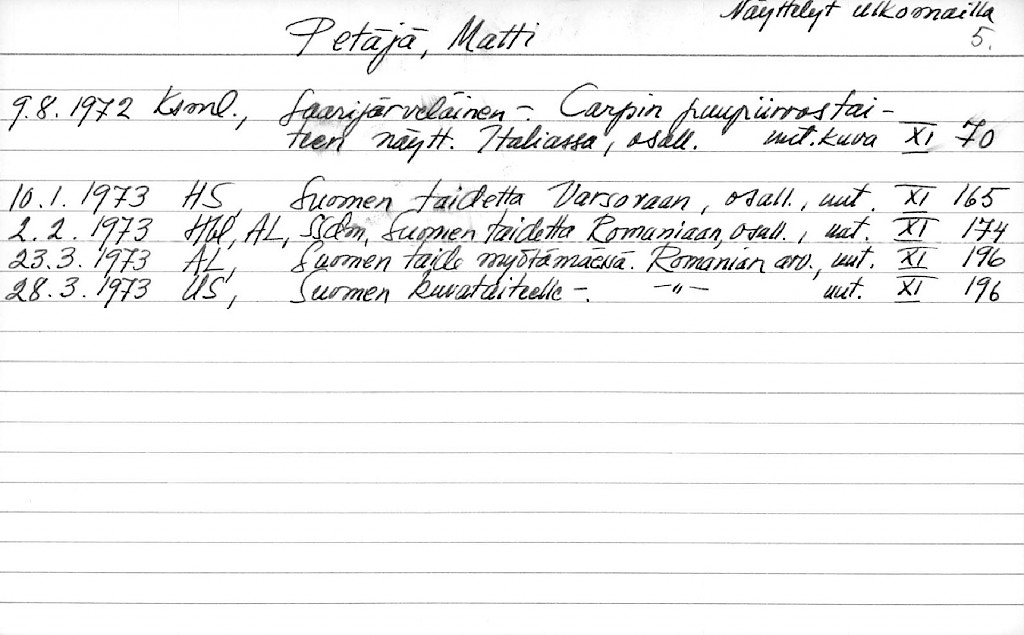 Näyttelyt ulkomailla
5.
Petäjä, Matti
9.8.1972 Ksml., Saarijärveläinen - Carpin puupiirrostai-
teen näytt. Italiassa, osall. uut.kuva XI 70
10.1.1973 HS, Suomen taidetta Varsovaan, osall., uut. XI 165
2.2.1973 Hbl, AL, SSdm, Suomen taidetta Romaniaan, osall., uut. XI 174
23.3.1973 AL, Suomen taide myötämäessä. Romanian arv., uut. XI 196
28.3.1973 US, Suomen kuvataiteelle -. -"- uut. XI 196